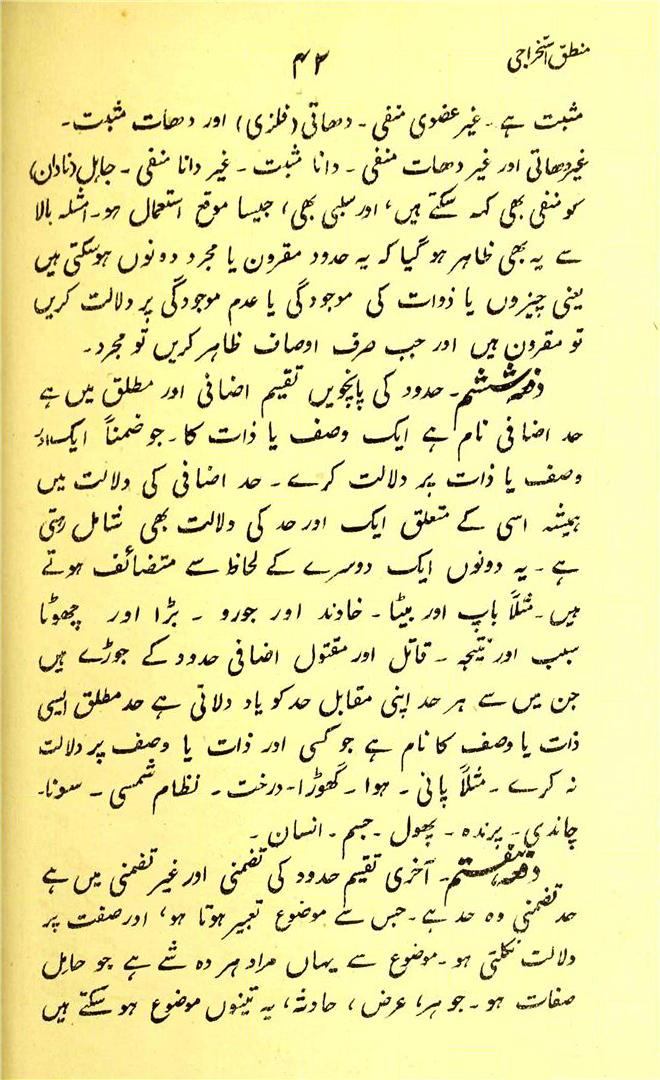 منطق استخراجی
۴۲
مثبت ہے ۔ غیر عضوی منفی ۔ دھاتی (فلزی) اور دھات مثبت ۔
غیر دھاتی اور غیر دھات منفی ۔ دانا مثبت ۔ غیر دانا منفی ۔ جاہل (نادان)
کو منفی بھی کہہ سکتے ہیں، اور سلبی بھی، جیسا موقع استعمال ہو۔ امثلہ بالا
سے یہ بھی ظاہر ہو گیا کہ یہ حدود مقرون یا مجرد دونوں ہوسکتی ہیں
یعنی چیزوں یا ذوات کی موجودگی یا عدم موجودگی پر دلالت کریں
تو مقرون ہیں اور جب صرف اوصاف ظاہر کریں تو مجرد ۔
دفعہ ششم ۔ حدود کی پانچویں تقیم اضافی اور مطلق میں ہے
حد اضافی نام ہے ایک وصف یا ذات کا ۔ جو ضمناً ایک اور
وصف یا ذات پر دلالت کرے ۔ حد اضافی کی دلالت میں
ہمیشہ اسی کے متعلق ایک اور حد کی دلالت بھی شامل رہتی
ہے ۔ یہ دونوں ایک دوسرے کے لحاظ سے متضائف ہوتے
ہیں ۔ مثلاً باپ اور بیٹا ۔ خاوند اور جورو ۔ بڑا اور چھوٹا
سبب اور نتیجہ ۔ قاتل اور مقتول اضافی حدود کے جوڑے ہیں
جن میں سے ہر حد اپنی مقابل حد کو یاد دلاتی ہے حد مطلق ایسی
ذات یا وصف کا نام ہے جو کسی اور ذات یا وصف پر دلالت
نہ کرے ۔ مثلاً پانی ۔ ہوا ۔ گھوڑا ۔ درخت ۔ نظام شمسی ۔ سونا ۔
چاندی ۔ پرندہ ۔ پھول ۔ جسم ۔ انسان ۔
دفعہ ہفتم ۔ آخری تقیم حدود کی تضمنی اور غیر تضمنی میں ہے
حد تضمنی وہ حد ہے ۔ جس سے موضوع تعبیر ہوتا ہو، اور صفت پر
دلالت نکلتی ہو ۔ موضوع سے یہاں مراد ہر وہ شے ہے جو حامل
صفات ہو ۔ جوہر، عرض، حادثہ، یہ تینوں موضوع ہو سکتے ہیں